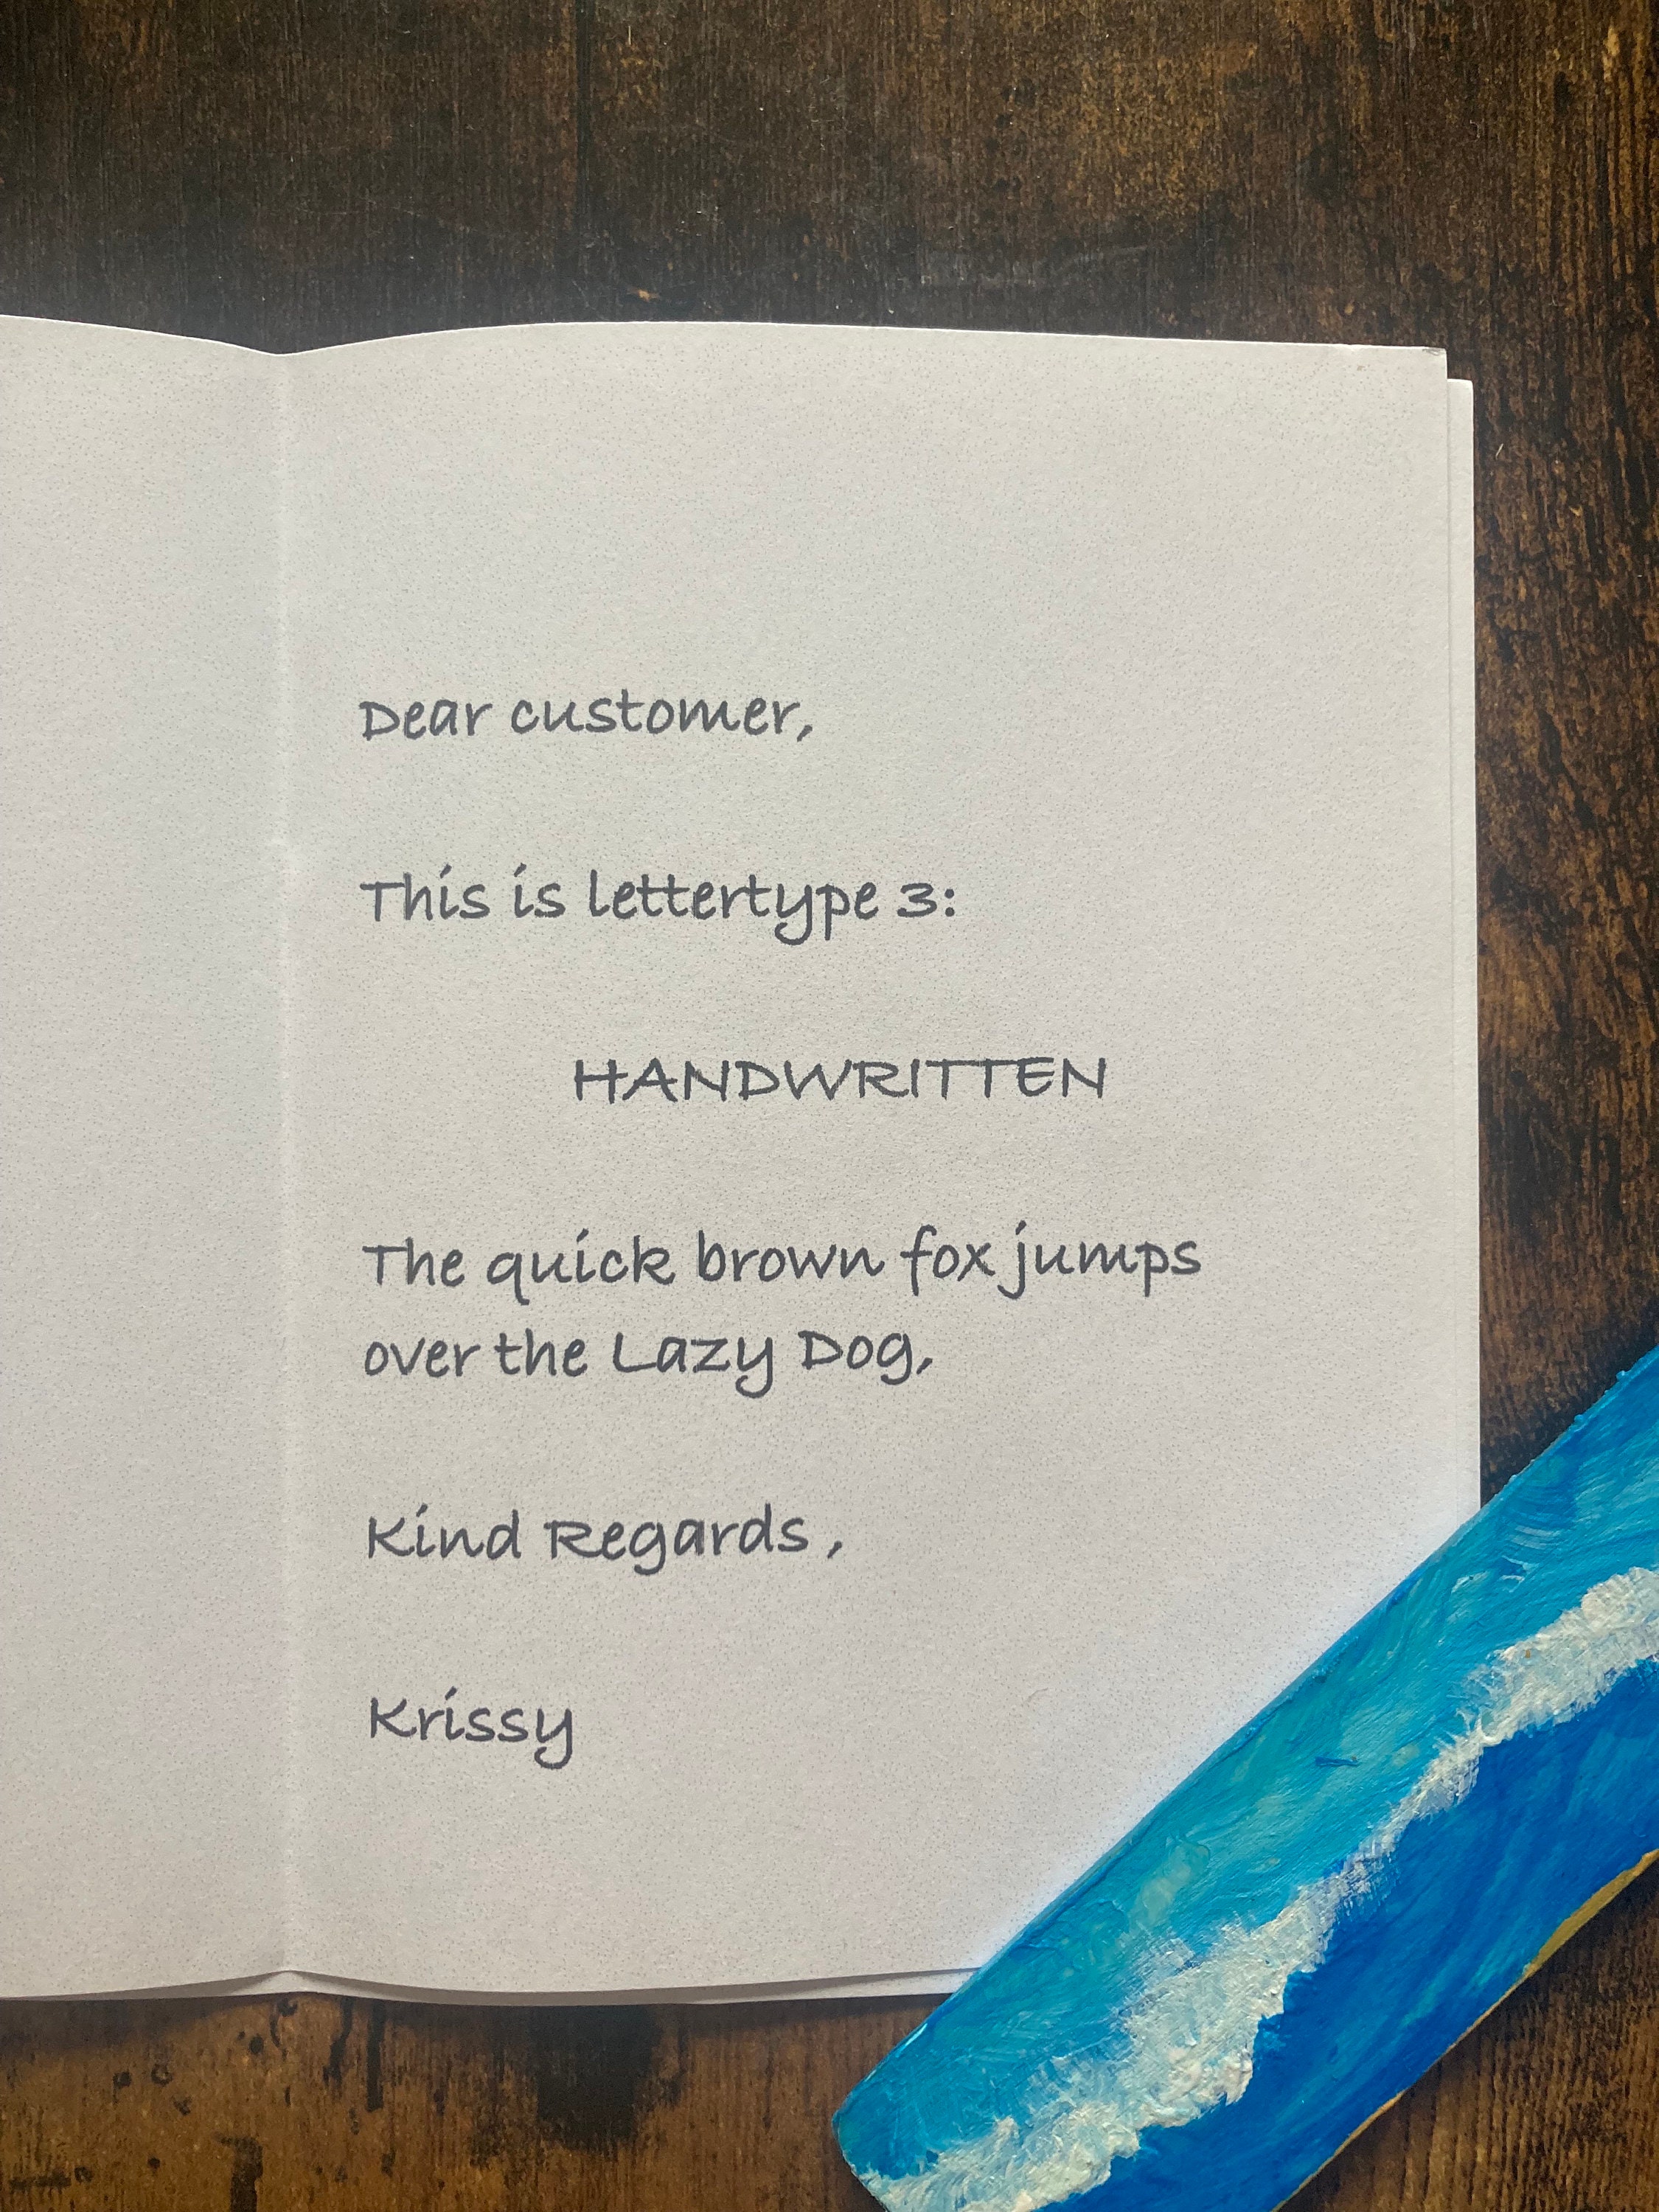 Dear customer,
This is lettertype 3:
HANDWRITTEN
The quick brown fox jumps
over the Lazy Dog,
Kind Regards ,
Krissy